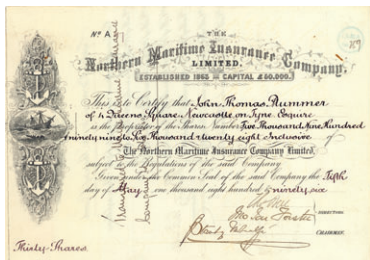 No A
THE
Northern Maritime Insurance Company,
LIMITED.
ESTABLISHED 1863 CAPITAL £50,000.
This is to Certify that John Thomas Plummer
of 4 Queens Square, Newcastle on Tyne Esquire
is the Proprietor of the Shares Number Five Thousand Nine Hundred
ninety nine to Six Thousand twenty eight Inclusive of
The Northern Maritime Insurance Company Limited,
subject to the Regulations of the said Company
Given under the Common Seal of the said Company the Fifth
day of May one thousand eight hundred & ninety six
DIRECTORS
CHAIRMAN.
Thirty Shares